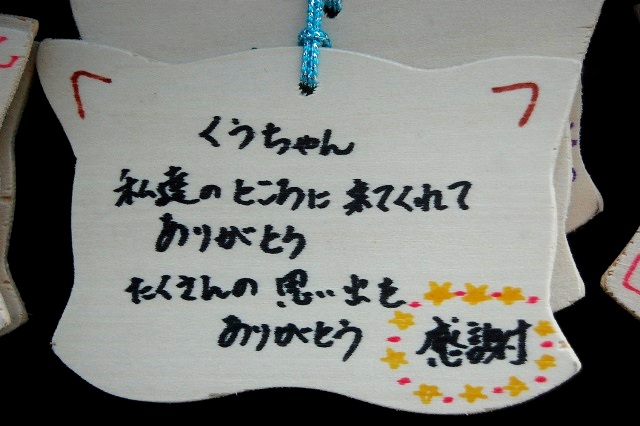 くうちゃん
私達のところに来てくれて
ありがとう
たくさんの思い出を
ありがとう
感謝